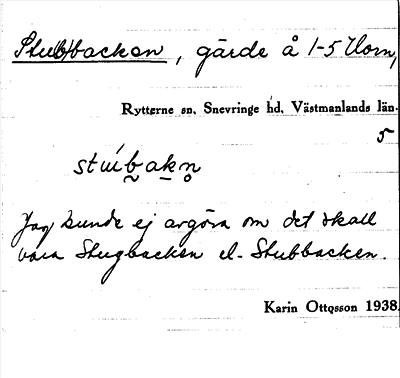 Stu(b)backen, gärde å 1-5 Horn,
Rytterne sn. Snevringe hd. Västmanlands län.
5
Jag kunde ej avgöra om det skall
vara Stugbacken el. Stubbacken.
Karin Ottosson 1938.